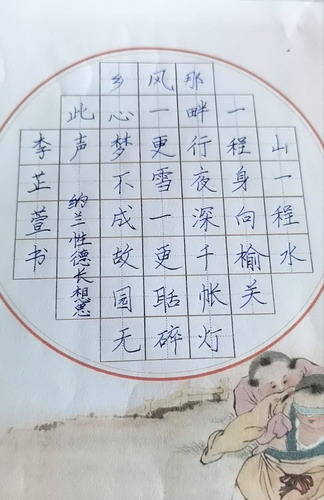 山一程水
一程身向榆关
那畔行夜深千帐灯
风一更雪一更聒碎
乡心梦不成故园无
此声
纳兰性德长相思
李芷萱书